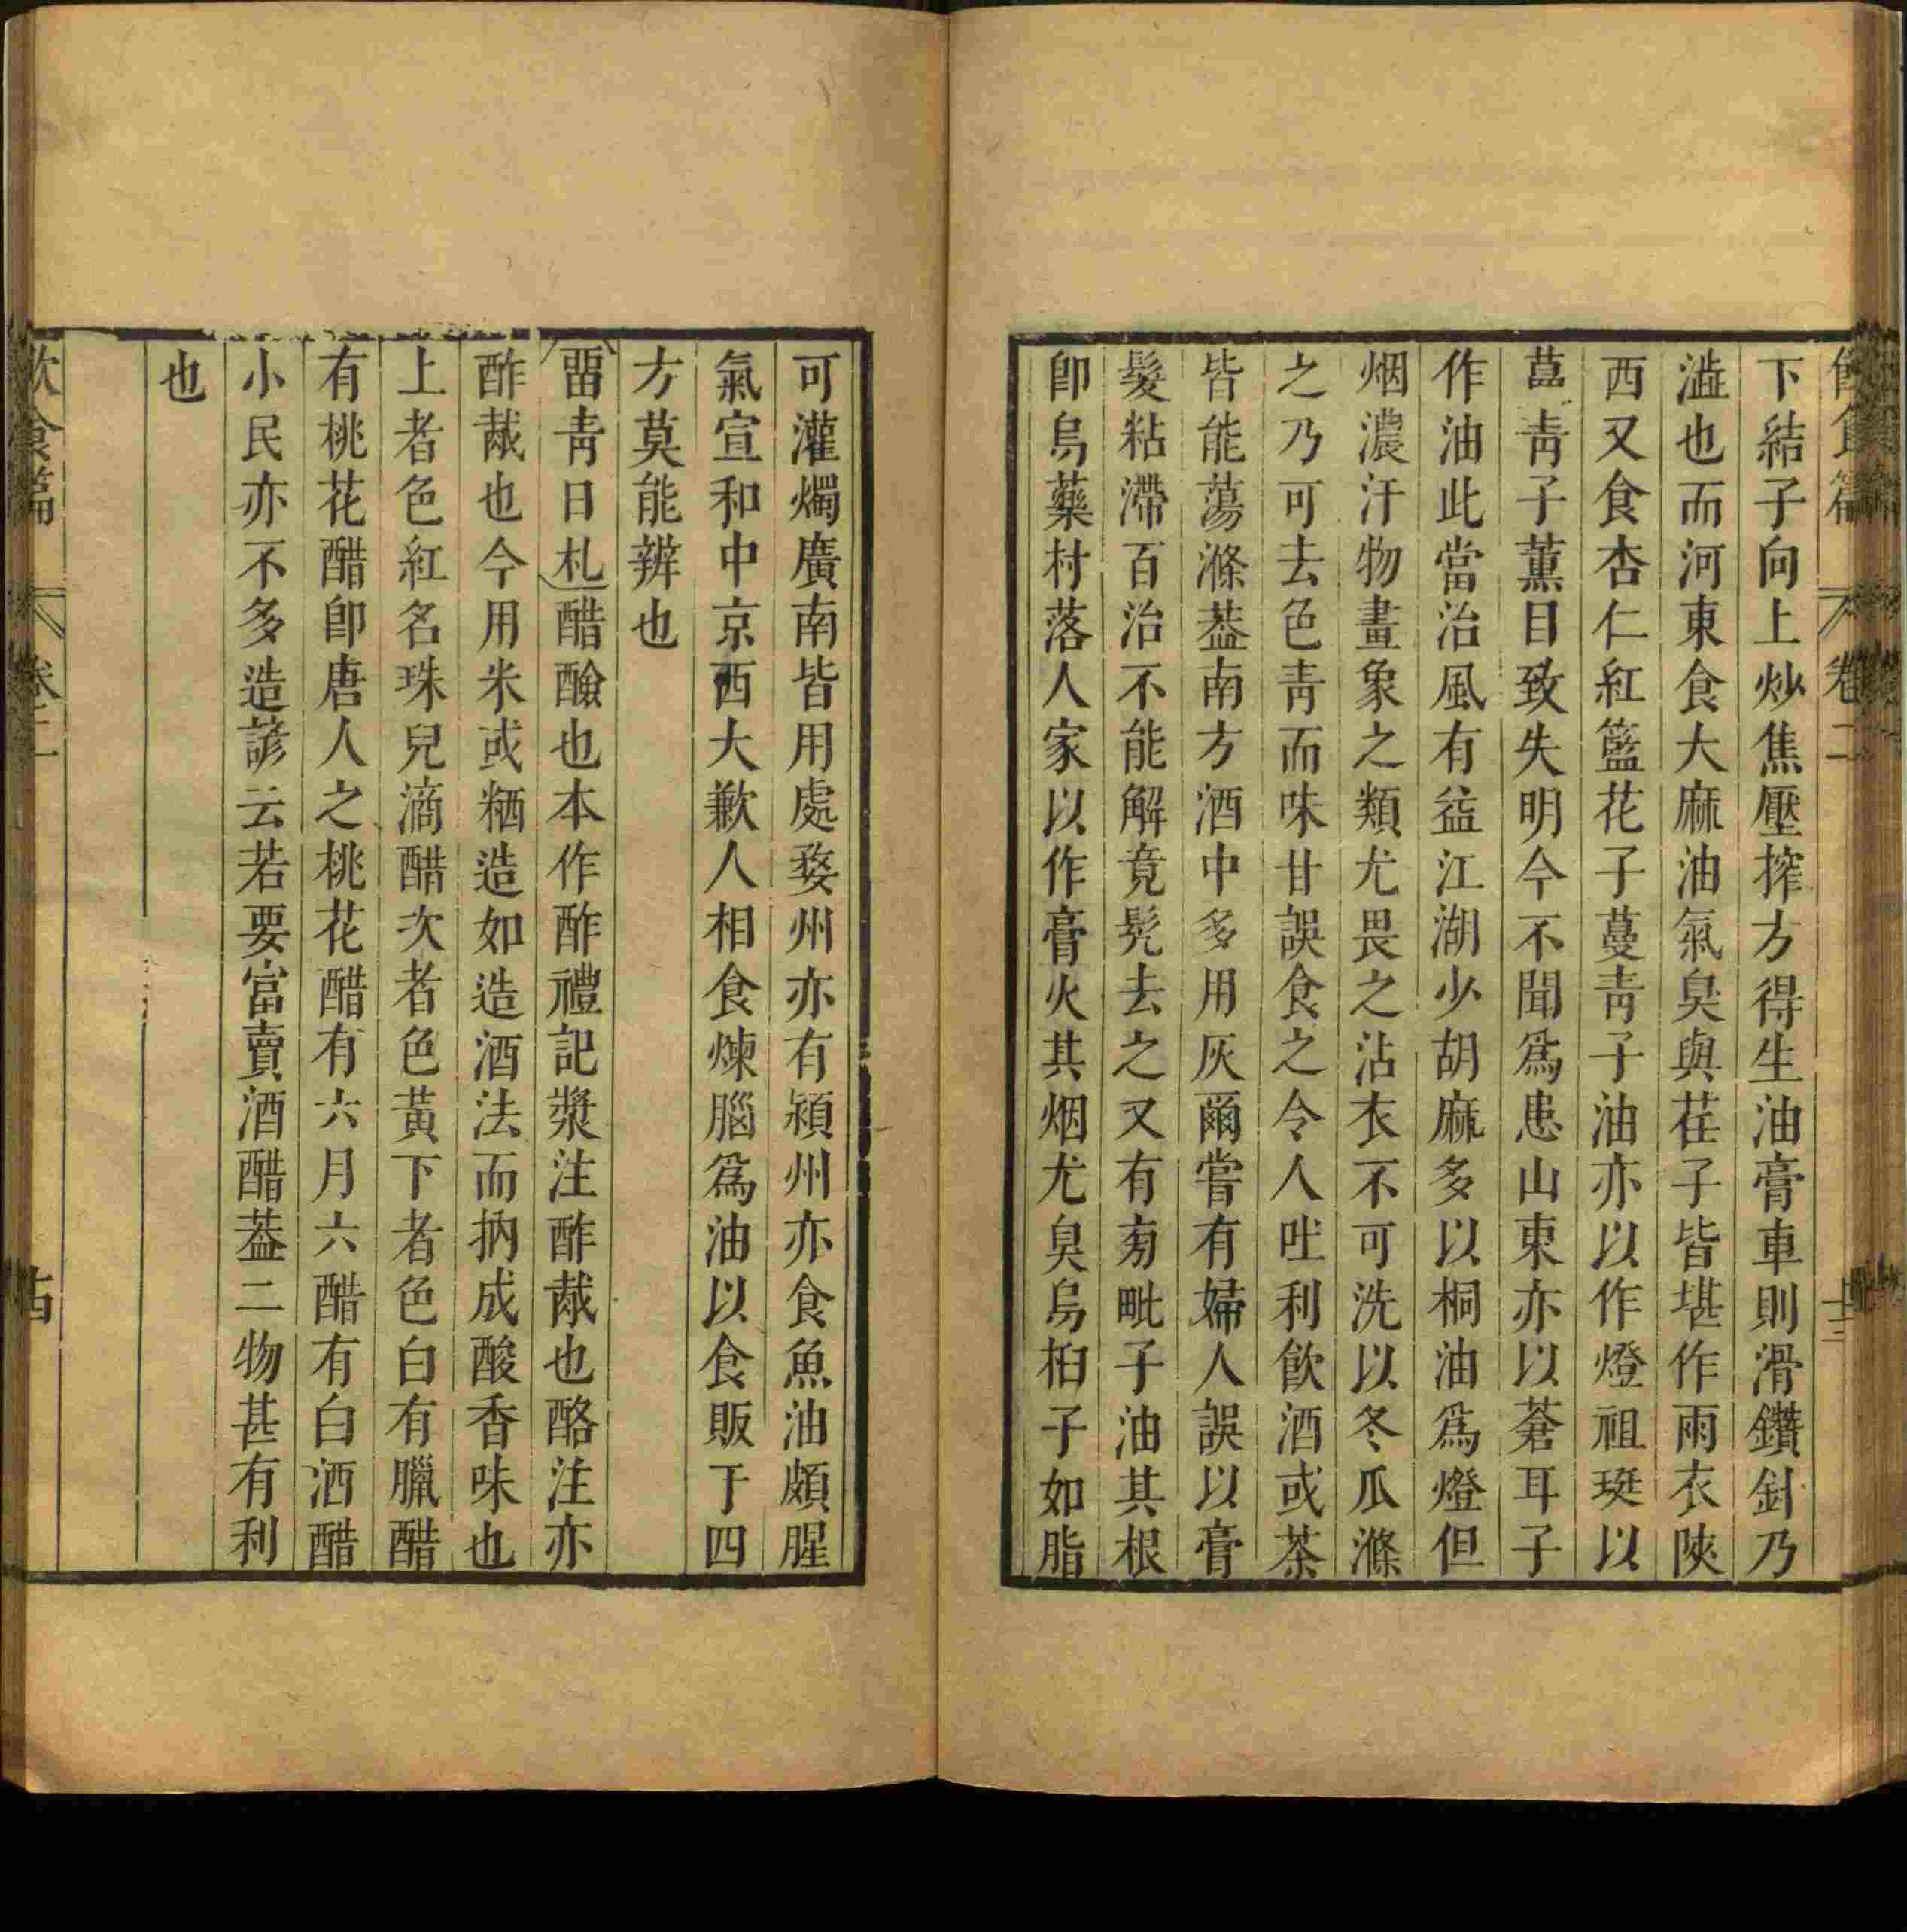 飲食篇 卷二 十三
下結子向上炒焦壓搾方得生油膏車則滑鑽針乃
澁也而河東食大麻油氣臭與荏子皆堪作雨衣陝
西又食杏仁紅籃花子蔓靑子油亦以作燈祖珽以
蔓靑子薰目致失明今不聞爲患山東亦以蒼耳子
作油此當治風有益江湖少胡麻多以桐油爲燈但
烟濃汙物畫象之類尤畏之沾衣不可洗以冬瓜滌
之乃可去色靑而味甘誤食之令人吐利飮酒或茶
皆能蕩滌葢南方酒中多用灰爾嘗有婦人誤以膏
髮粘滯百治不能解竟髡去之又有旁毗子油其根
卽烏藥村落人家以作膏火其烟尤臭烏桕子如脂
可灌燭廣南皆用處婺州亦有潁州亦食魚油頗腥
氣宣和中京西大歉人相食煉腦爲油以食販于四
方莫能辨也
畱靑日札醋醶也本作酢禮記漿注酢酨也酪注亦
酢酨也今用米或粞造如造酒法而抐成酸香味也
上者色紅名珠兒滴醋次者色黃下者色白有臘醋
有桃花醋卽唐人之桃花醋有六月六醋有白酒醋
小民亦不多造諺云若要富賣酒醋葢二物甚有利
也
飲食篇 卷二 十四